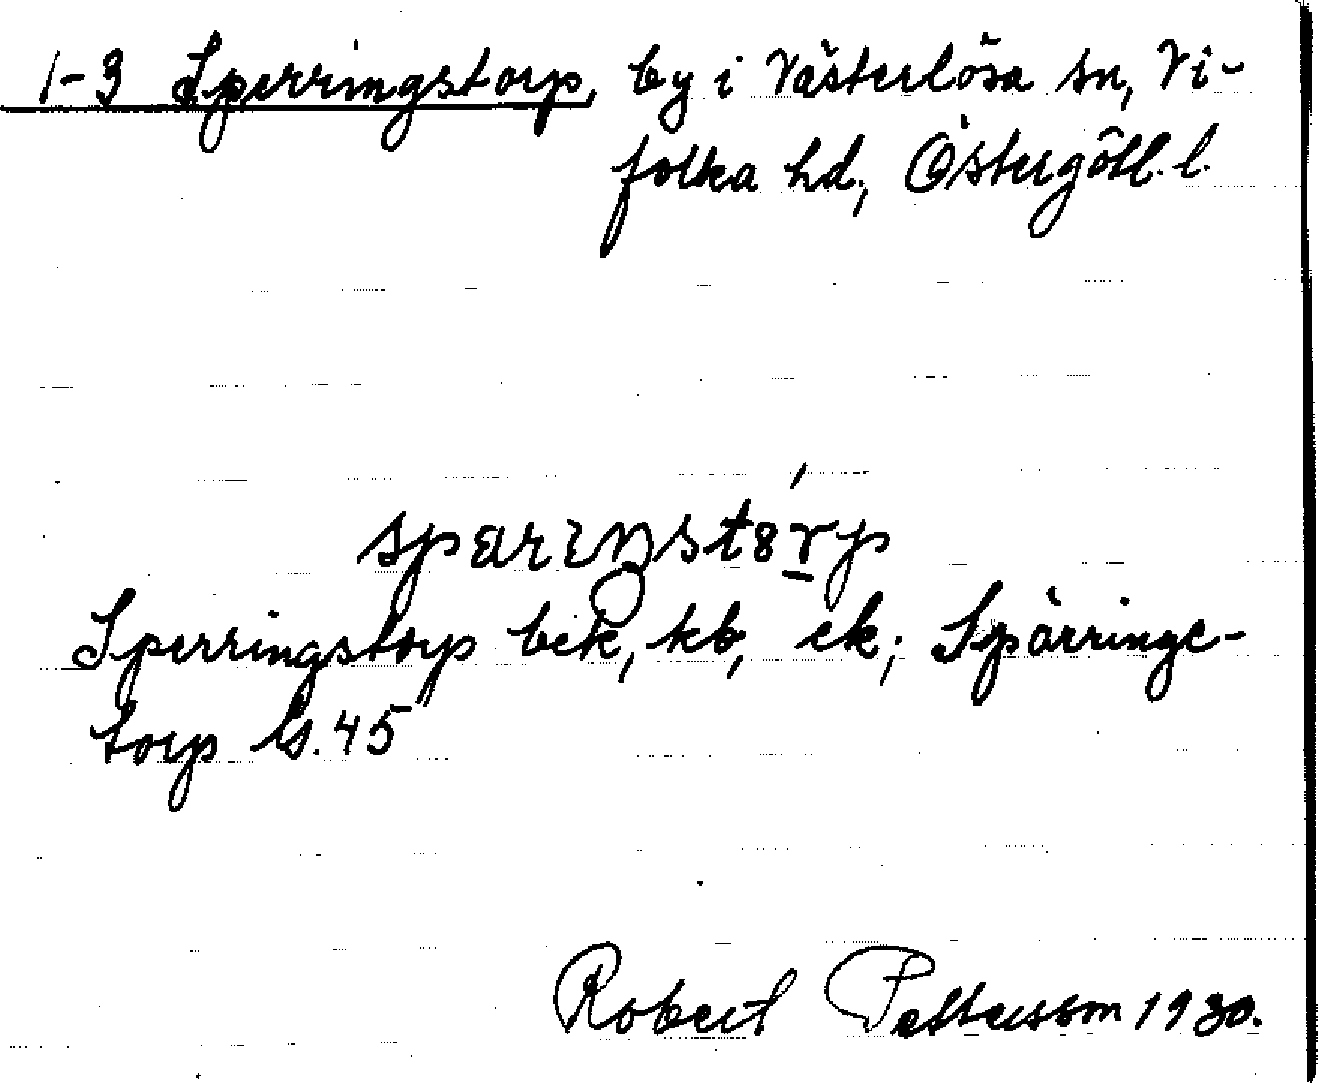 1-3 Sperringstorp, by i Västerlösa sn, Vi-
folka hd, Östergötl. l.
Sperringstorp bek, kb, ek; Spärringe-
torp ls. 45
Robert Pettersson 1930.